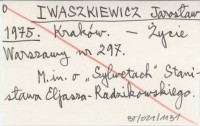 IWASZKIEWICZ Jarosław
1975. Kraków. – Życie
Warszawy nr 297.
M.in. o „Sylwetach" Stani-
sława Eljasza-Radzikowskiego.